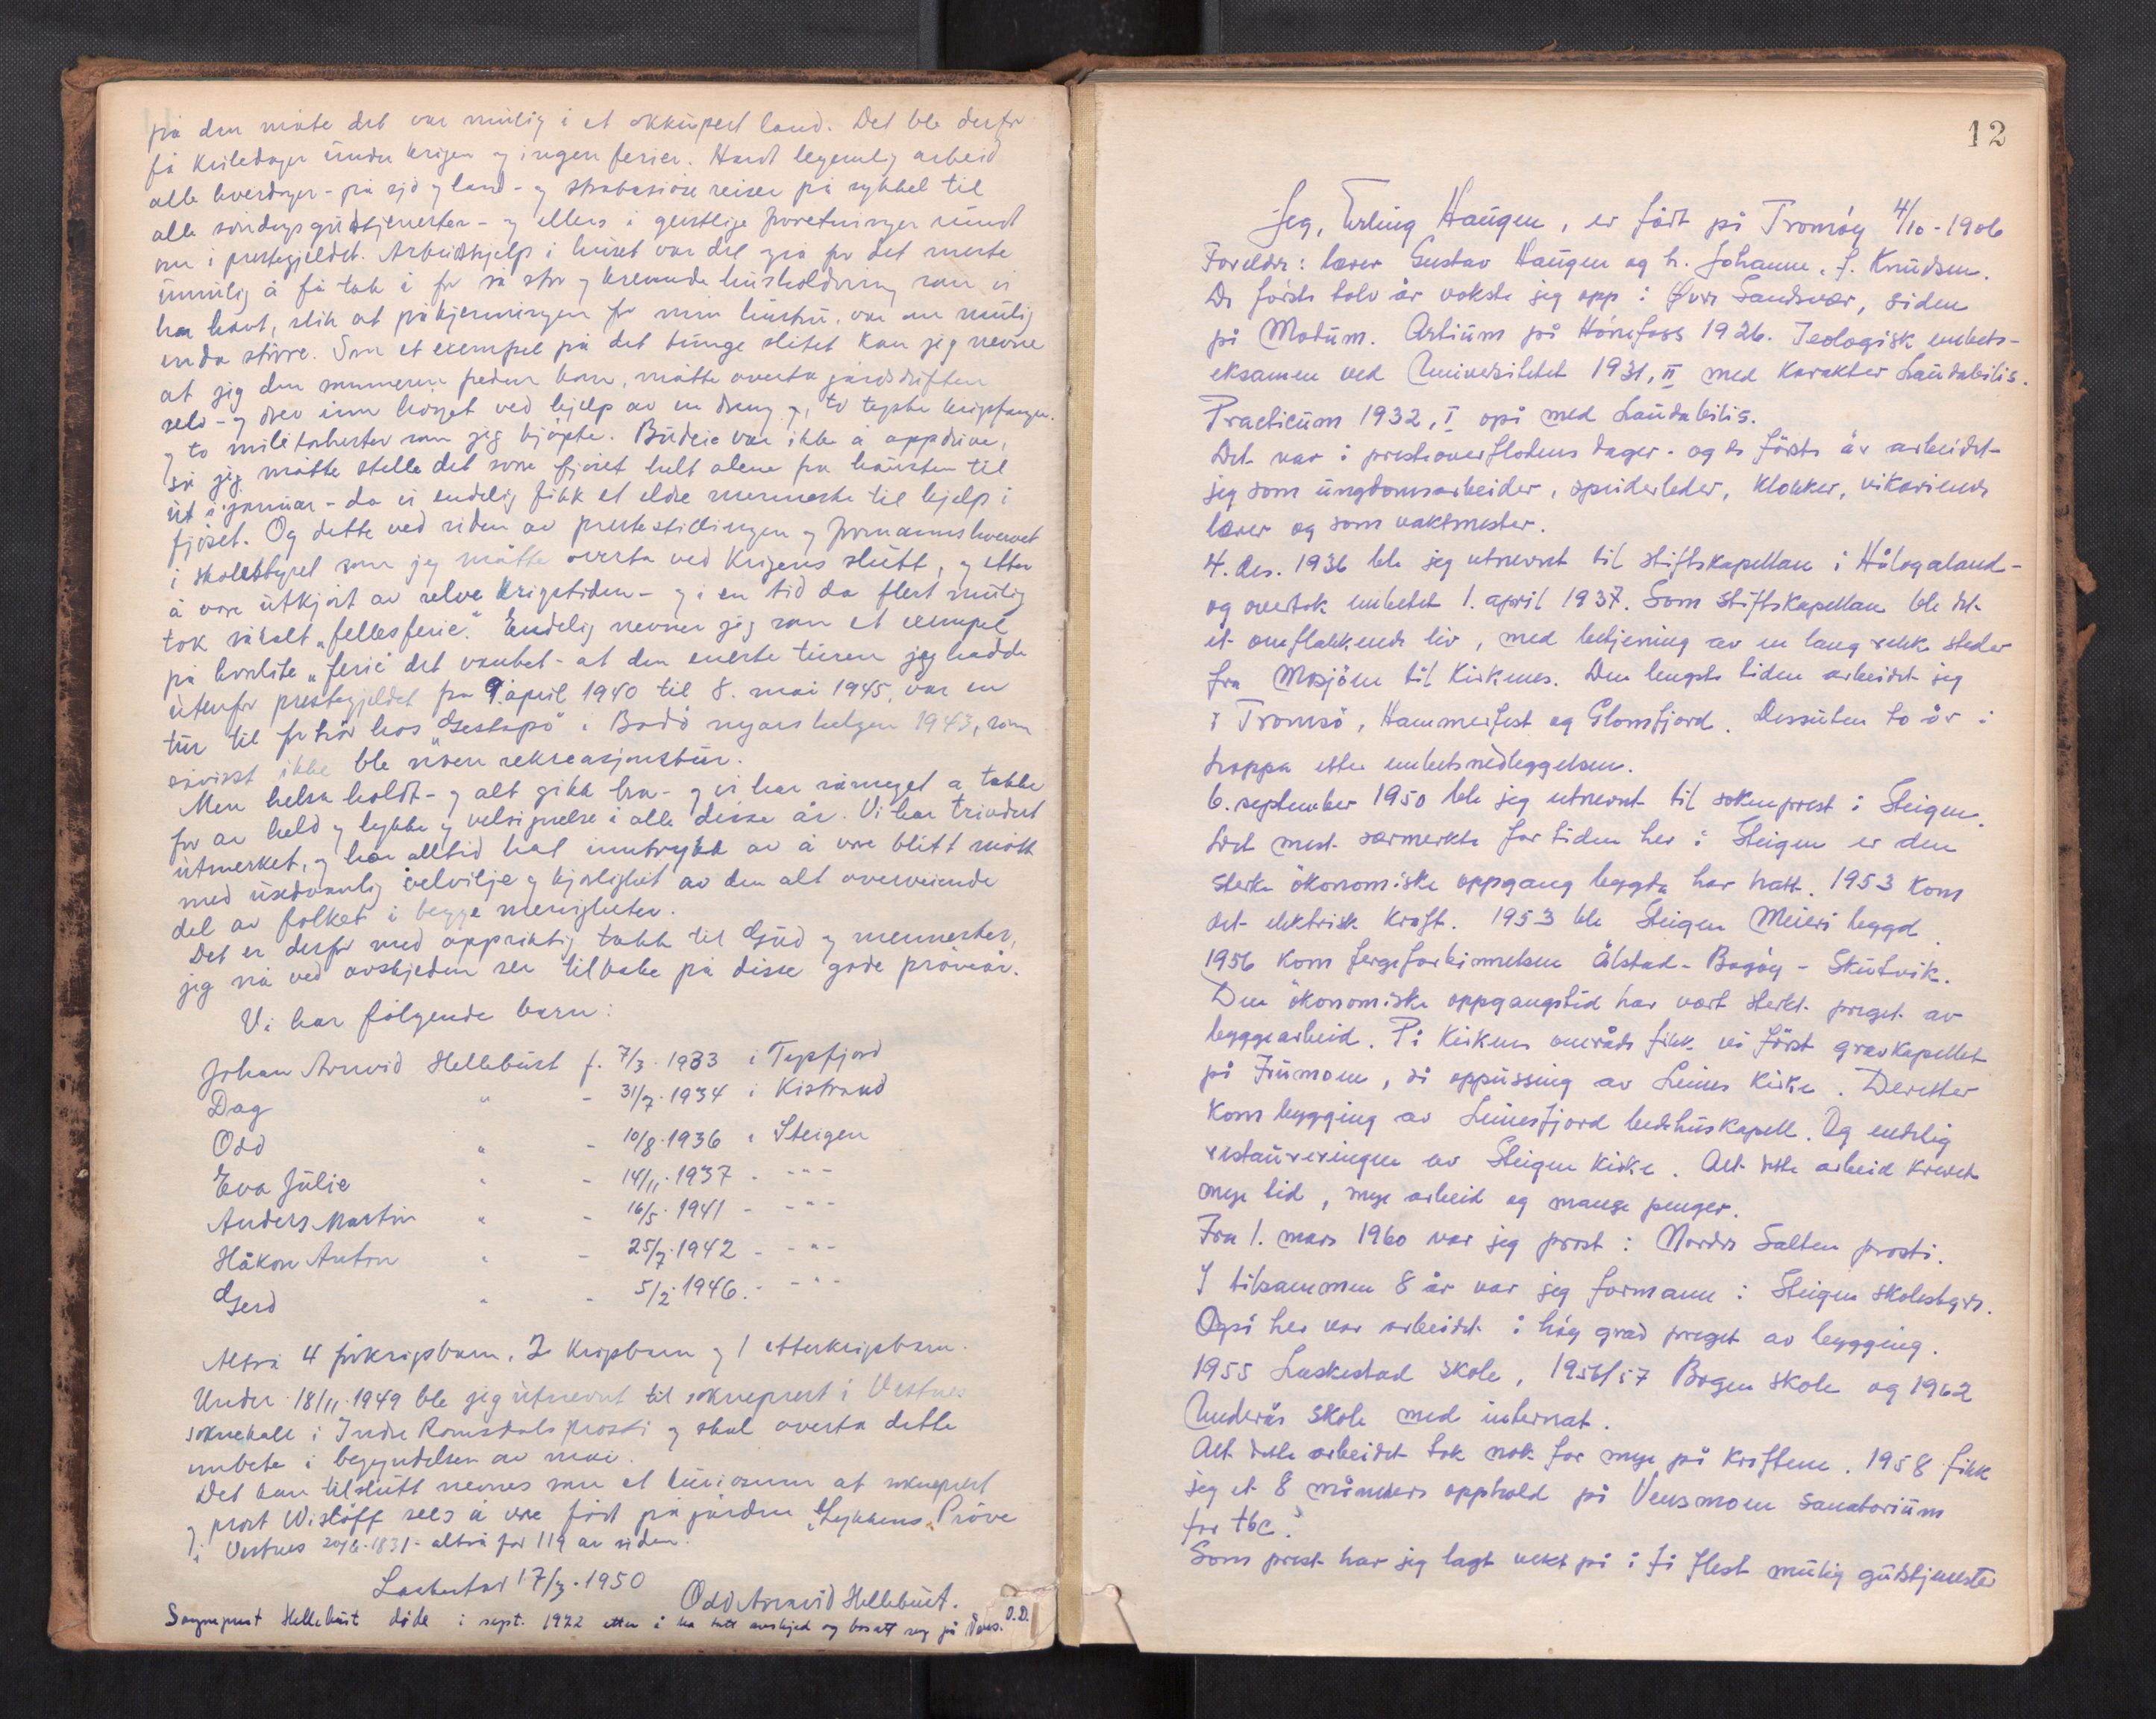 på den måte det var mulig i et okkupert land. Det ble derfor
få hviledager under krigen og ingen ferier. Hardt legemlig arbeid
alle hverdager - på sjø og land - og strabasiøse reiser på sykkel til
alle søndagsgudstjenester - og ellers i geistlige forretninger rundt
om i prestegjeldet. Arbeidshjelp i huset var det også for det meste
umulig å få tak i for så stor og krevende husholdning som vi
har havt, slik at påkjenningen for min hustru var om mulig
enda større. Som et exempel på det tunge slitet kan jeg nevne
at jeg den sommeren freden kom, måtte overta gårdsdriften
selv - og drev inn høyet ved hjelp av en dreng og to tyske krigsfanger
og to militærhester som jeg kjøpte. Budeie var ikke å oppdrive,
så jeg måtte stelle det store fjøset helt alene fra høusten til
ut i januar - da vi endelig fikk et eldre menneske til hjelp i
fjøset. Og dette ved siden av prestestillingen og formannshvervet
i skolestyret som jeg måtte overta ved krigens slutt, og etter
å vøre utkjørt av selve krigstiden - og i en tid da flest mulig
tok såkalt "fellesferie." Endelig nevner jeg som et exempel
på hvor lite "ferie" det vanket - at den eneste turen jeg hadde
utenfor prestegjeldet fra 9. april 1940 til 8. mai 1945, var en
tur til forhør hos "Gestapo" i Bodø nyårshelgen 1943, som
såvisst ikke ble noen rekreasjonstur.
Men helsa holdt - og alt gikk bra - og vi har såmeget å takke
for av held og lykke og velsignelse i alle disse år. Vi har trivdest
utmerket, og har alltid hat inntrykk av å vøre blitt møtt
med usedvanlig velvilje og kjærlighet av den alt overveiende
del av folket i begge menigheter.
Det er derfor med oppriktig takk til Gud og mennesker,
jeg nå ved avskjeden ser tilbake på disse gode prøveår.
Vi har følgende barn:
Johan Arnvid Hellebust f. 7/3. 1933 i Topsfjord
Dag " - 31/7. 1934 i Kistrand
Odd " - 10/8. 1936 i Steigen
Eva Julie " - 14/11. 1937 - -"-
Anders Martin " - 16/5. 1941 - -"-
Håkon Anton " - 25/7. 1942 - -"-
Gerd " - 5/2. 1946. - -"-
Altså 4 førkrigsbarn, 2 krigsbarn og 1 etterkrigsbarn.
Under 18/11. 1949 ble jeg utnevnt til sokneprest i Vestnes
soknekall i Indre Romsdals prosti og skal overta dette
embete i begyndelsen av mai.
Det kan tilslutt nevnes som et kuriosum at sokneprest
og prost Wisløff sees å vøre født på gården "Lykkens Prøve"
i Vestnes 20/6. 1831 - altså for 119 år siden.
Laskestad 17/3. 1950 Odd Arnvid Hellebust.
Sogneprest Hellebust døde i sept. 1972 etter å ha tatt avskjed og bosatt seg på O.D.
12
Jeg, Erling Haugen, er født på Tromøy 4/10-1906
Foreldre: lærer Gustav Haugen og h. Johanne, f. Knudsen.
De første tolv år vokste jeg opp i Øvre Sandsvær, siden
på Modum. Artium på Hønefoss 1926. Teologisk embets-
eksamen ved Universitetet 1931, II med karakter Laudabilis.
Practicum 1932, I også med Laudabilis.
Det var i presteoverflodens dager - og de første år arbeidet
jeg som ungdomsarbeider, speiderleder, klokker, vikarierende
lærer og som vaktmester.
4. des. 1936 ble jeg utnevnt til stiftskapellan i Hålogaland -
og overtok embetet 1. april 1937. Som stiftskapellan ble det
et omflakkende liv, med betjening av en lang rekke steder
fra Mosjøen til Kirkenes. Den lengste tiden arbeidet jeg
i Tromsø, Hammerfest og Glomfjord. Dessuten to år i
Loppa etter embetsnedleggelsen.
6. september 1950 ble jeg utnevnt til sokneprest i Steigen.
Det mest særmerkte for tiden her i Steigen er den
sterke økonomiske oppgang bygda har hatt. 1953 kom
det elektrisk kraft. 1953 ble Steigen Meieri bygd.
1956 kom fergeforbinnelsen Ålstad - Bogøy - Skutvik.
Den økonomiske oppgangstid har vært sterkt preget av
byggearbeid. På kirkens område fikk vi først gravkapellet
på Furumoen, så oppussing av Leines kirke. Deretter
kom bygging av Leinesfjord bedehuskapell. Og endelig
restaureringen av Steigen kirke. Alt dette arbeid krevet
mye tid, mye arbeid og mange penger.
Fra 1. mars 1960 var jeg prost i Nordre Salten prosti.
I tilsammen 8 år var jeg formann i Steigen skolestyre.
Også her var arbeidet i høy grad preget av bygging.
1955 Laskestad skole, 1956/57 Bogen skole og 1962
Nuderås skole med internat.
Alt dette arbeidet tok nok for mye på kreftene. 1958 fikk
jeg et 8 måneders opphold på Vensmoen sanatorium
for tbc.
Som prest har jeg lagt vekt på å få flest mulig gudstjenester